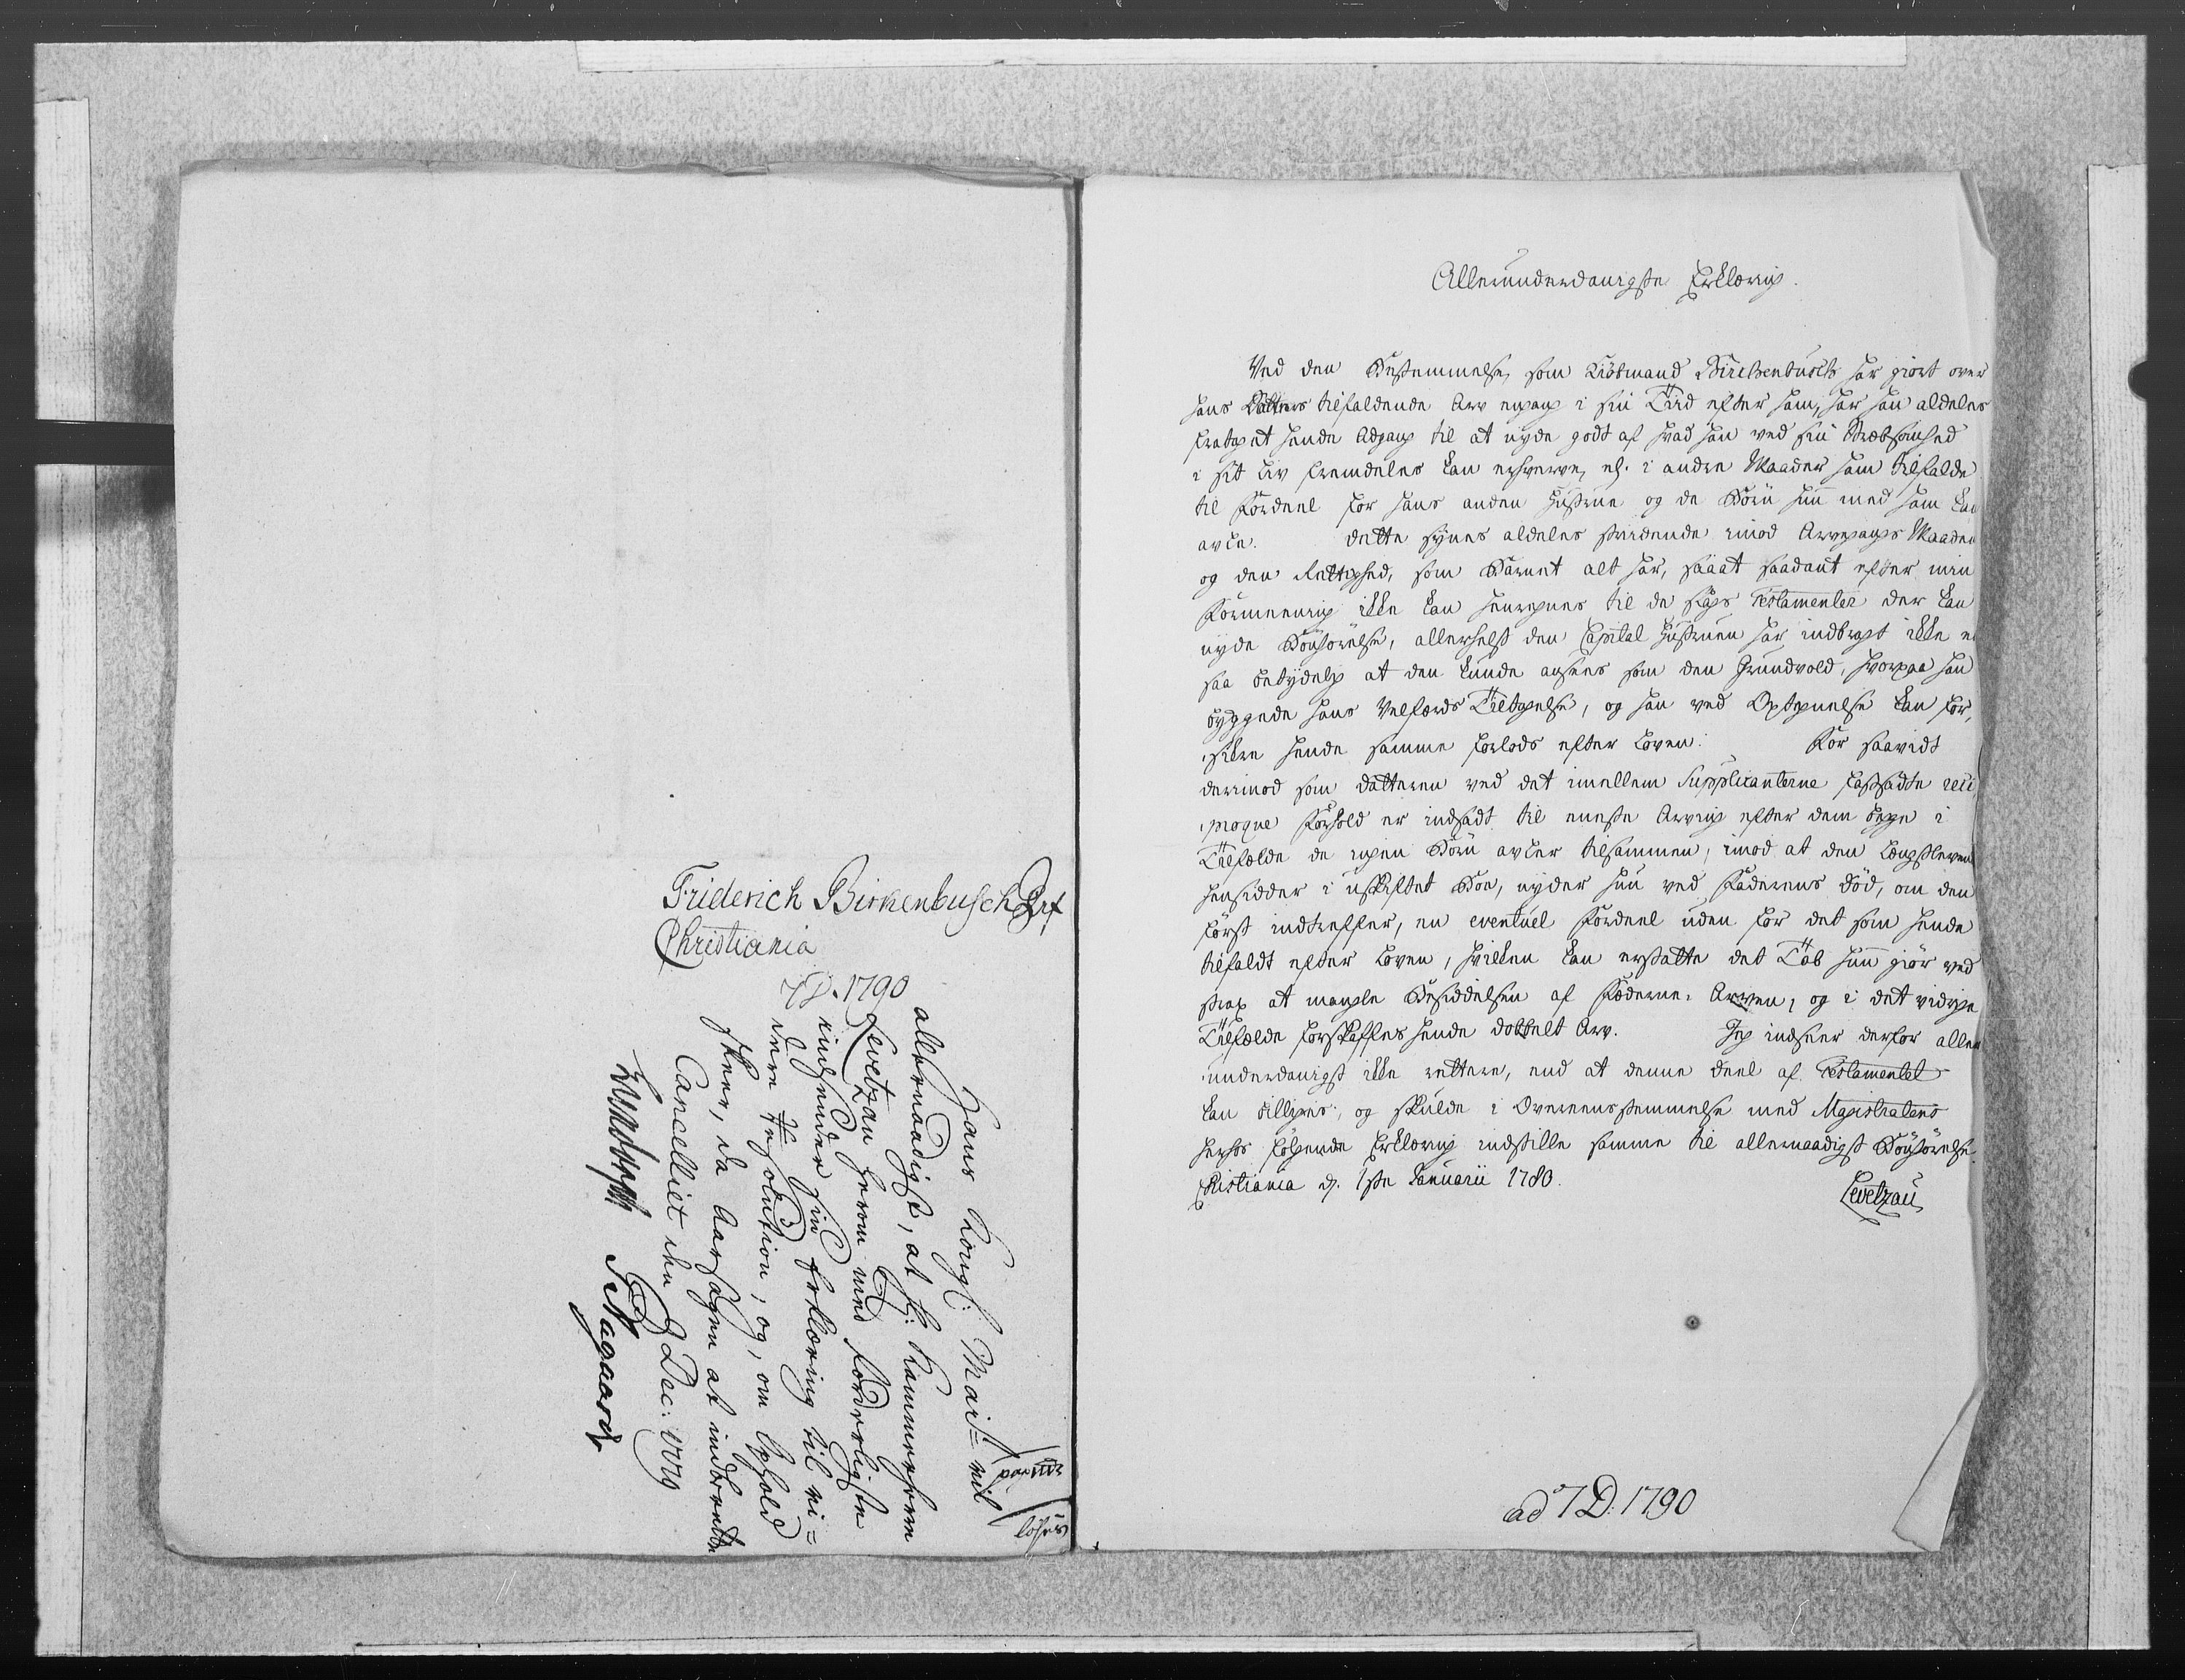 Friderich Birkenbusch
Christiania
7 D. 1790
Hans Kongl: Maj:= vil
allernaadigst, at Hr: Kammerherre
Levetzau herom med forderligste
indsender sin Erklæring til vi=
dere Resolution, og, om Ophold
skeer, da Aarsagen at indberette
Cancelliet den Dec: 1779
Aagaard
Allerunderdanigste Erklæring.
Ved den Bestemmelse, som Kiøbmand Birchenbusch har giort over
hans Datters tilfaldende Arv engang i sin Tiid efter ham, har han aldeles
frataget hende Adgang til at nyde godt af hvad han ved sin Stræbsomhed
i sit Liv fremdeles kan erhverve, el. i andre Maader ham tilfalde
til Fordeel for hans anden Hustrue og de Børn hun med ham kan
avle. Dette synes aldeles stridende imod Arvegangs Maaden
og den Rettighed, som Barnet alt har, saaat saadant efter min
Formeening ikke kan henregnes til de slags Testamenter der kan
nyde Bønhørelse, allerhelst den Capital Hustruen har indbragt ikke er
saa betydelig at den kunde ansees som den Grundvold, hvorpaa han
byggede hans Velfærds Tiltagelse, og han ved Optegnelse kan for,
sikre hende samme forlods efter Loven. For saavidt
derimod som Datteren ved det imellem Supplicanterne fastsadte reci
proque Forhold er indsadt til eneste Arving efter dem begge i
Tilfælde de ingen Børn avler tilsammen, imod at den Længstlevende
hensidder i uskiftet Boe, nyder hun ved Faderens Død, om den
først indtreffer, en eventuel Fordeel uden for det som hende
tilfaldt efter Loven, hvilken kan erstatte det Tab hun giør ved
strax at mangle Besiddelsen af Fæderne Arven, og i det vidrige
Tilfælde forskaffes hende dobbelt Arv. Jeg indseer derfor aller
underdanigst ikke rettere, end at denne Deel af Testamentet
kan billiges, og skulde i Overeensstemmelse med Magistratens
herhos følgende Erklæring indstille samme til allernaadigst Bønhørelse.
Christiania d. 1ste Januarii 1780.
Levetzau
ad 7 D: 1790